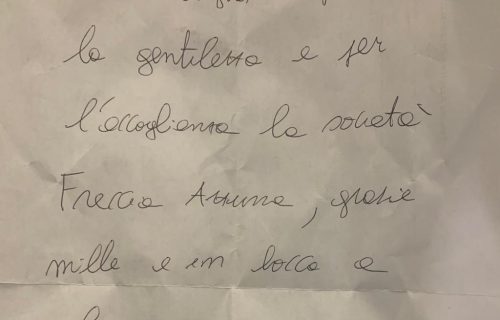 la gentilezza e per
l'accoglienza la società
Freccia Azzurra, grazie
mille e in bocca a